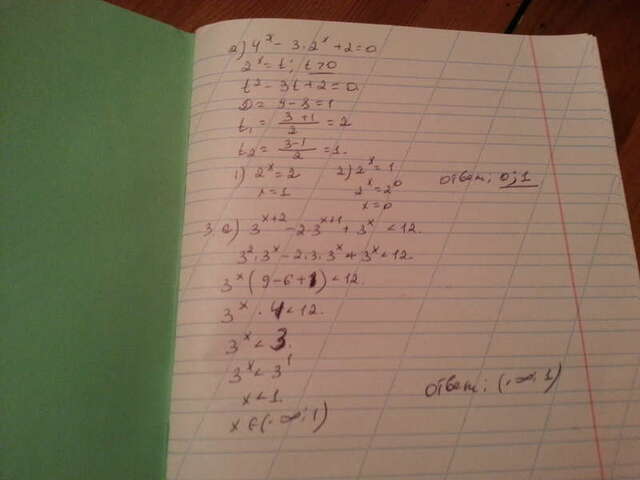 а) 4^x - 3·2^x + 2 = 0
2^x = t; t>0
t² - 3t + 2 = 0
D = 9 - 8 = 1
t₁ = (3+1)/2 = 2
t₂ = (3-1)/2 = 1.
1) 2^x = 2 2) 2^x = 1
x = 1 2^x = 2^0
x = 0
Ответ: 0; 1
3. а) 3^(x+2) - 2·3^(x+1) + 3^x < 12.
3²·3^x - 2·3·3^x + 3^x < 12.
3^x (9 - 6 + 1) < 12.
3^x · 4 < 12.
3^x < 3.
3^x < 3^1
x < 1.
x ∈ (-∞; 1)
Ответ: (-∞; 1)